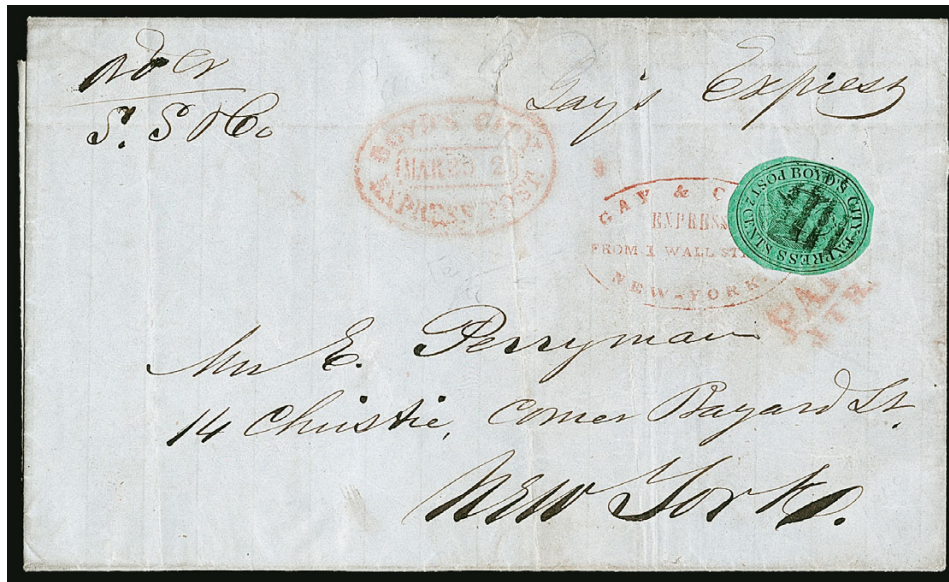 Gay's Express
S. S & Co
BOYD'S CITY
MAR 25 2
EXPRESS POST.
GAY & C
EXPRESS
FROM 1 WALL ST
NEW-YORK.
BOYD'S CITY EXPRESS POST 2 CENTS
PAI
J.T.B.
Mrs E. Perryman
14 Christie, Corner Bayard St.
New York.